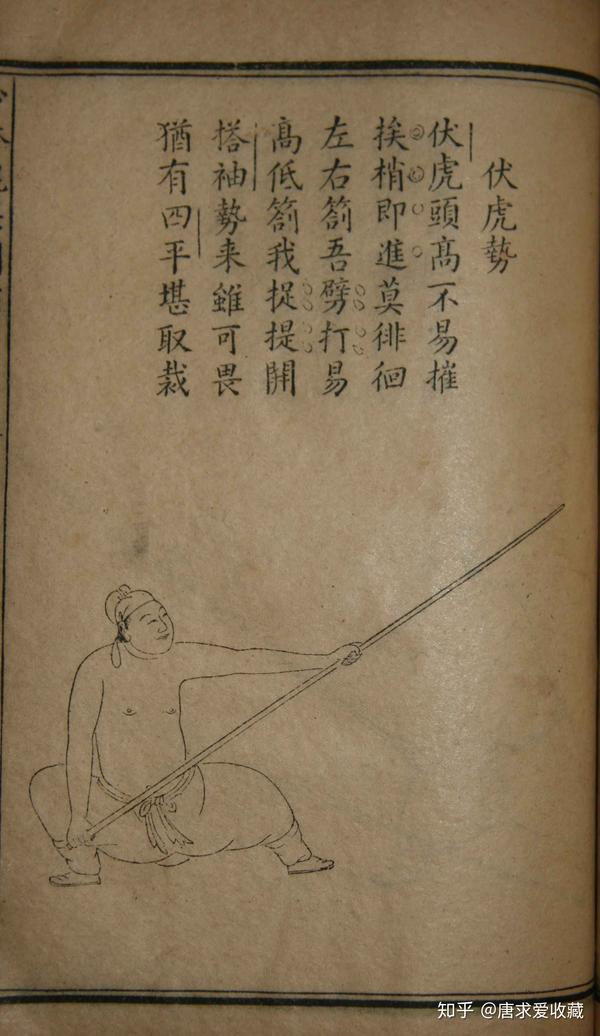 伏虎勢
伏虎頭髙不易摧
挨梢即進莫徘徊
左右劄吾劈打易
髙低劄我捉提開
搭袖勢来雖可畏
猶有四平堪取裁
知乎 @唐求爱收藏